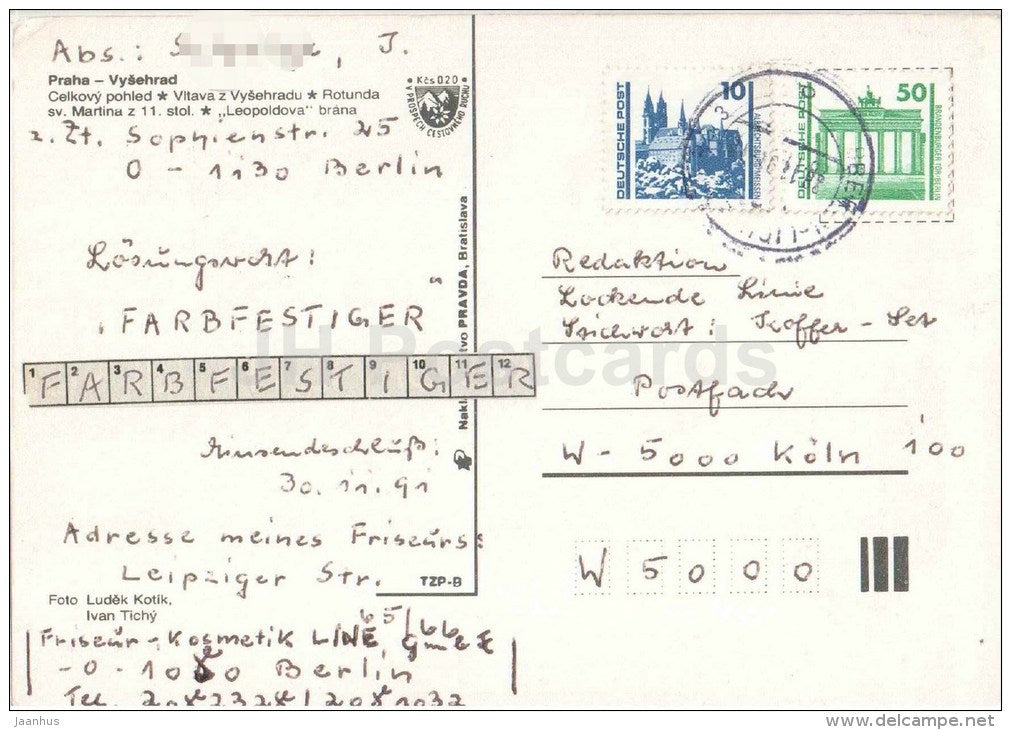 Abs.: J.
Praha – Vyšehrad
Celkový pohled ★ Vltava z Vyšehradu ★ Rotunda
sv. Martina z 11. stol. ★ „Leopoldova" brána
Kčs 0.20
V PROSPĚCH CESTOVNÉHO RUCHU
z. Zt. Sophienstr. 25
O - 1130 Berlin
Lösungswort:
"FARBFESTIGER"
1 2 3 4 5 6 7 8 9 10 11 12
F A R B F E S T I G E R
Einsendeschluß:
30.11.91
Adresse meines Friseurs:
Leipziger Str.
65/66
Foto Luděk Kotík,
Ivan Tichý
Friseur-Kosmetik LINE GmbH
-O-1080 Berlin
Tel.
TZP-B
PRAVDA, Bratislava
DEUTSCHE POST
10
ALBRECHTSBURG MEISSEN
DEUTSCHE POST
50
BRANDENBURGER TOR BERLIN
Redaktion
Lockende Linie
Stichwort: Koffer-Set
Postfach
100
W - 5000 Köln
W 5 0 0 0
JH Postcards
Jaanhus
www.delcampe.net